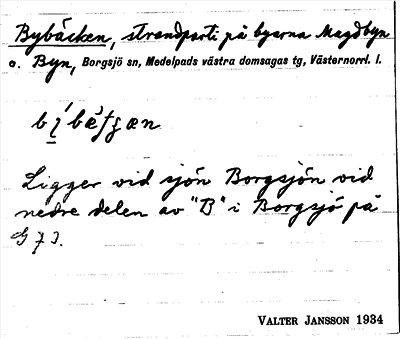 Bybäcken, strandparti på byarna Magdbyn
o. Byn, Borgsjö sn, Medelpads västra domsagas tg, Västernorrl. l.
Ligger vid sjön Borgsjön vid
nedre delen av "B" i Borgsjö på
VALTER JANSSON 1934